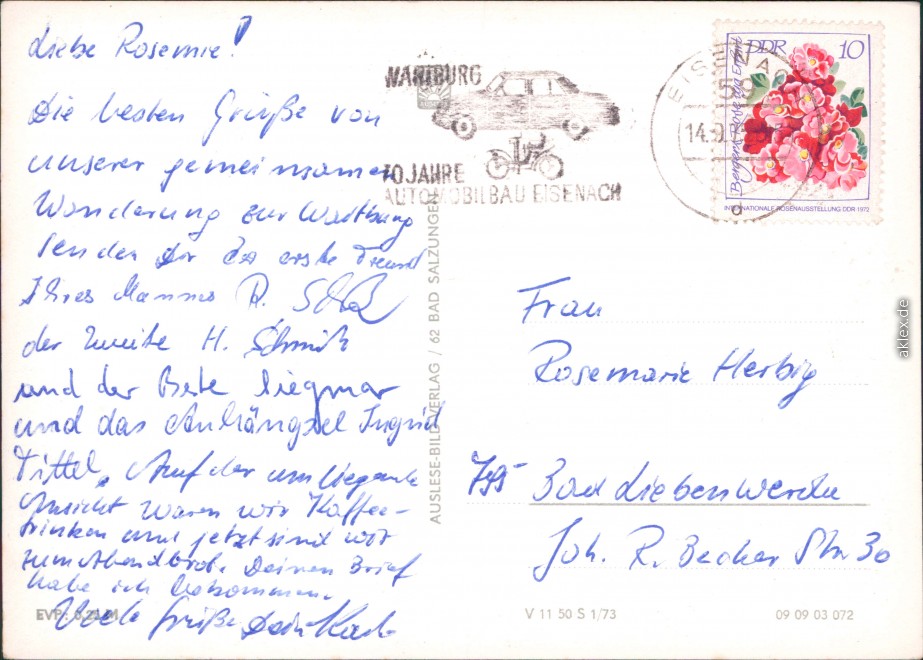 Liebe Rosemie!
Die besten Grüße von
unserer gemeinsamen
Wanderung zur Wartburg
senden Dir der erste Freund
Ihres Mannes R.
der zweite H. Schmidt
und der Siegmar
und das Anhängsel Ingrid
Tittel. Auf der umliegende
Ansicht waren wir Kaffee-
trinken und jetzt sind wir
zum Abendbrot. Deinen Brief
habe ich bekommen.
Viele Grüße Dein
WARTBURG
70 JAHRE
AUTOMOBILBAU EISENACH
EISENACH
59
14.9.
d
DDR 10
INTERNATIONALE ROSENAUSSTELLUNG DDR 1972
AUSLESE-BILD-VERLAG / 62 BAD SALZUNGEN
Frau
Rosemarie Herbig
795 Bad Liebenwerda
Joh. R. Becher Str. 30
EVP:
V 11 50 S 1/73
09 09 03 072
aklex.de